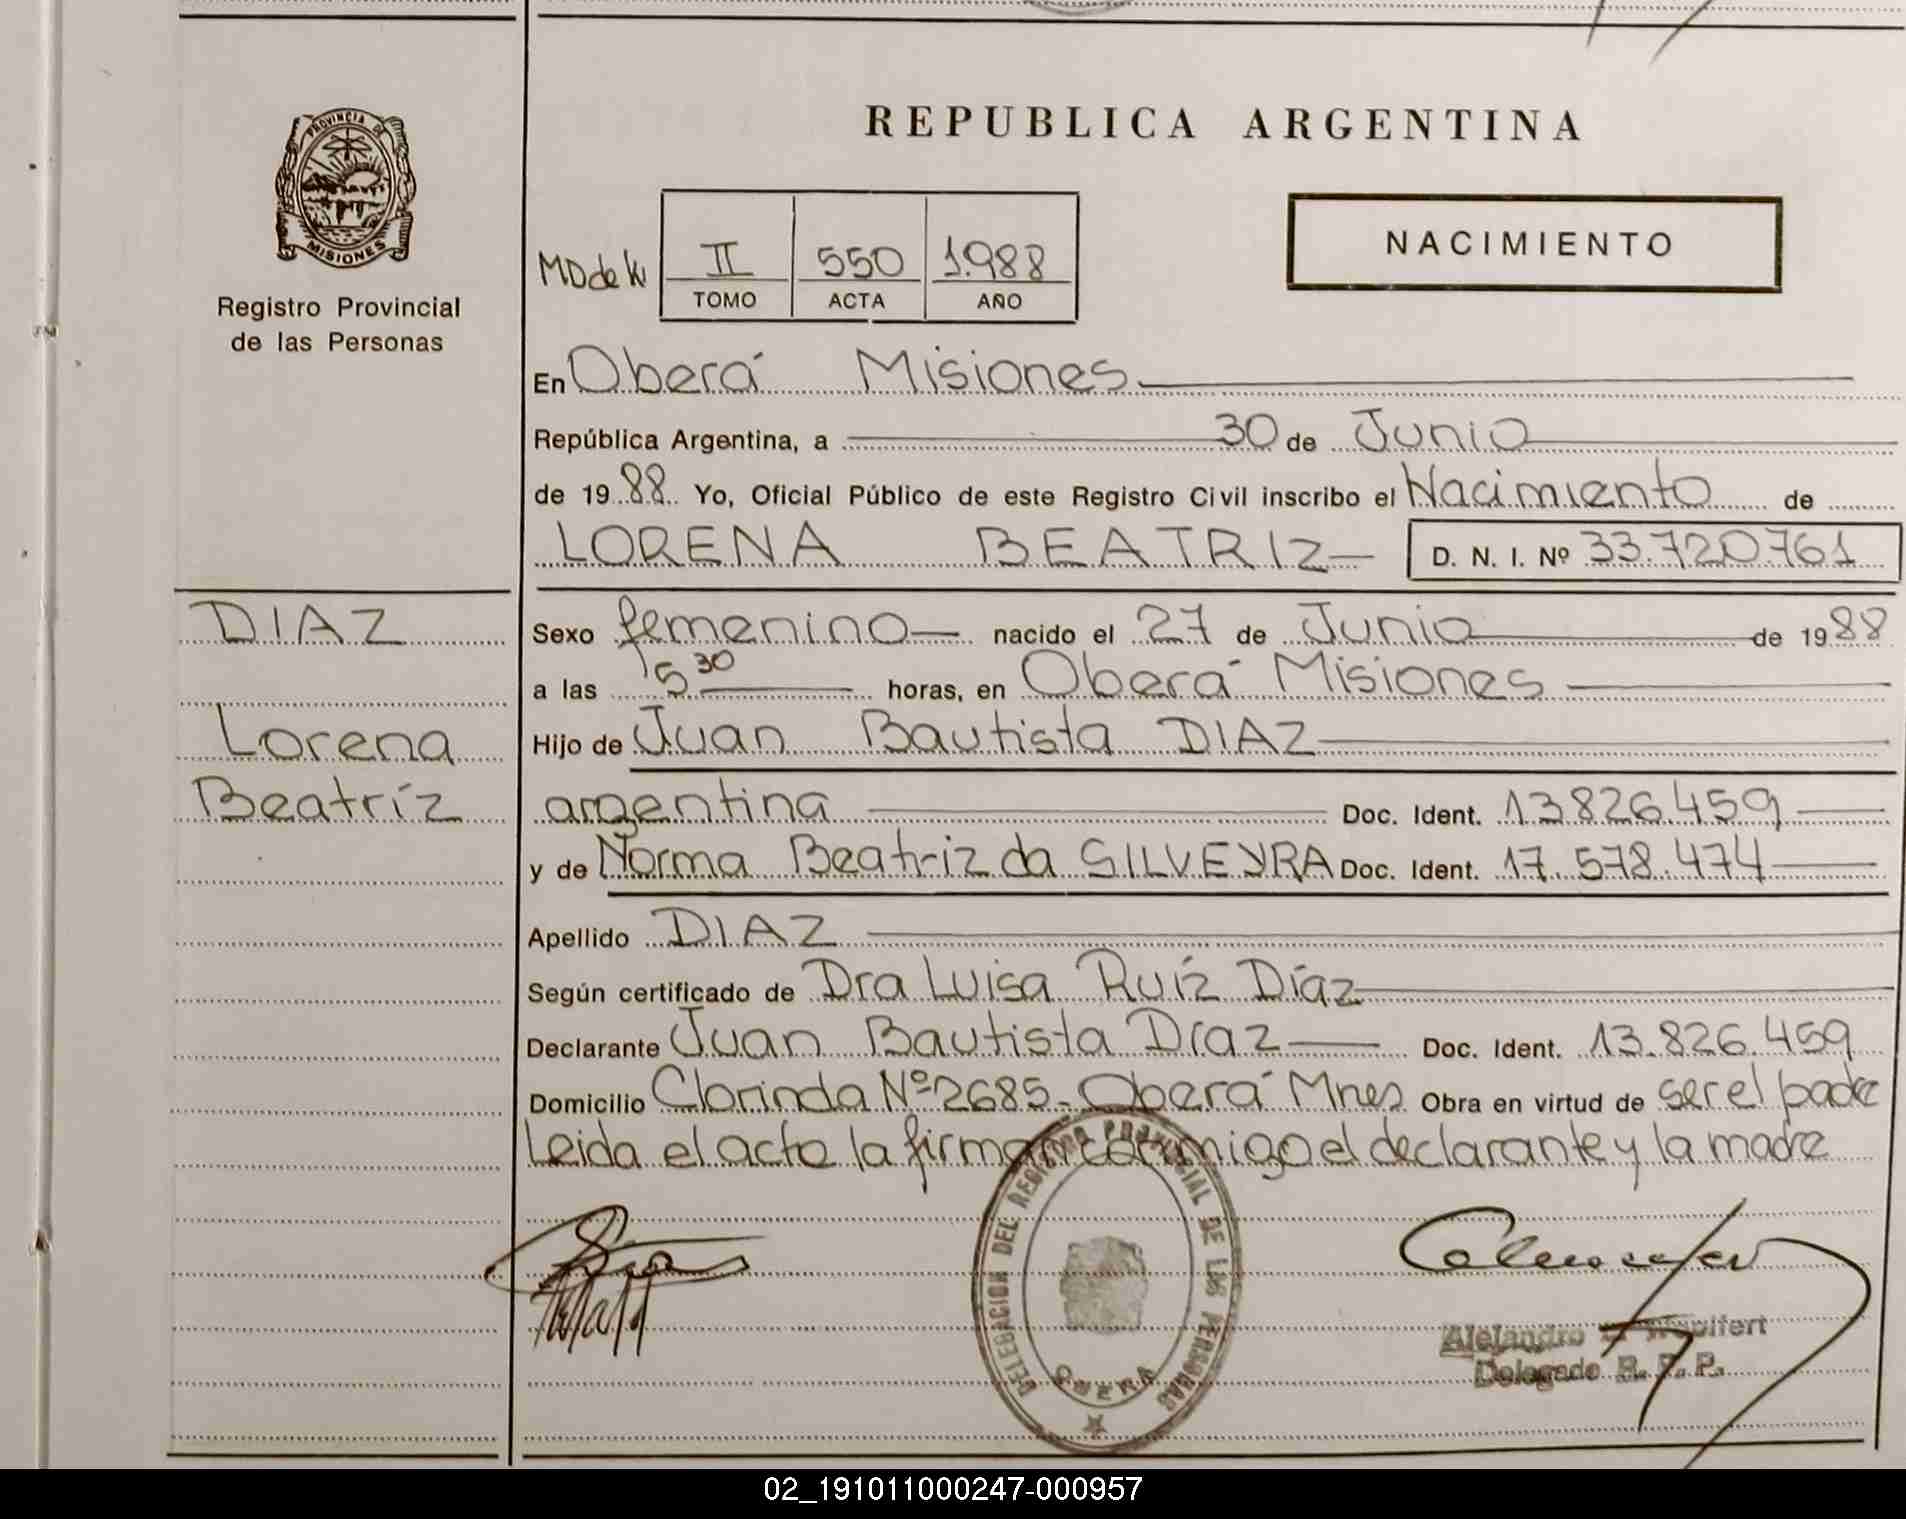 REPUBLICA ARGENTINA
PROVINCIA DE MISIONES
Registro Provincial
de las Personas
II 550 1.988
TOMO ACTA AÑO
NACIMIENTO
En Oberá Misiones
República Argentina, a 30 de Junio
de 1988 Yo, Oficial Público de este Registro Civil inscribo el Nacimiento de
LORENA BEATRIZ D. N. I. Nº 33.720.761
DIAZ
Lorena
Beatríz
Sexo femenino nacido el 27 de Junio de 1988
a las 5 30 horas, en Oberá Misiones
Hijo de Juan Bautista DIAZ
argentina Doc. Ident. 13.826.459
y de Norma Beatriz da SILVEYRA Doc. Ident. 17.578.474
Apellido DIAZ
Según certificado de Dra Luisa Ruíz Díaz
Declarante Juan Bautista Díaz Doc. Ident. 13.826.459
Domicilio Clorinda Nº 2685- Oberá Mnes Obra en virtud de ser el padre
Leida el acta la firman conmigo el declarante y la madre
DELEGACION DEL REGISTRO PROVINCIAL DE LAS PERSONAS
OBERA
Alejandro
Delegado R. P. P.
02_191011000247-000957